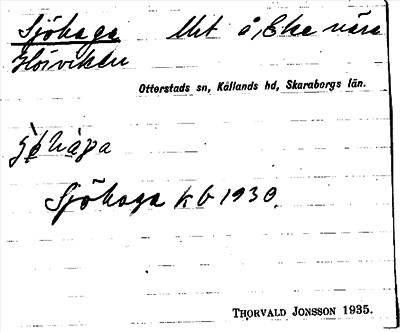 Sjöhaga Utt å Eke nära
Otterstads sn, Kållands hd, Skaraborgs län.
Sjöhaga kb 1930
THORVALD JONSSON 1935.